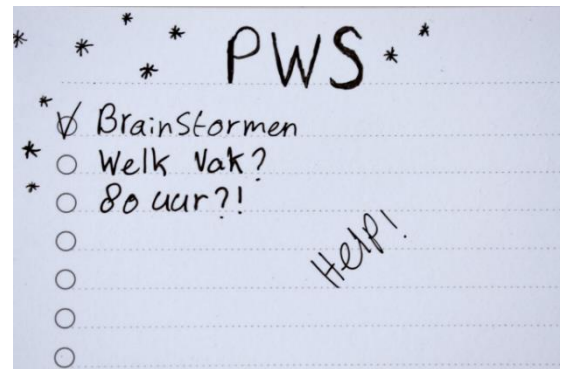 PWS
Brainstormen
Welk vak?
80 uur?!
Help!